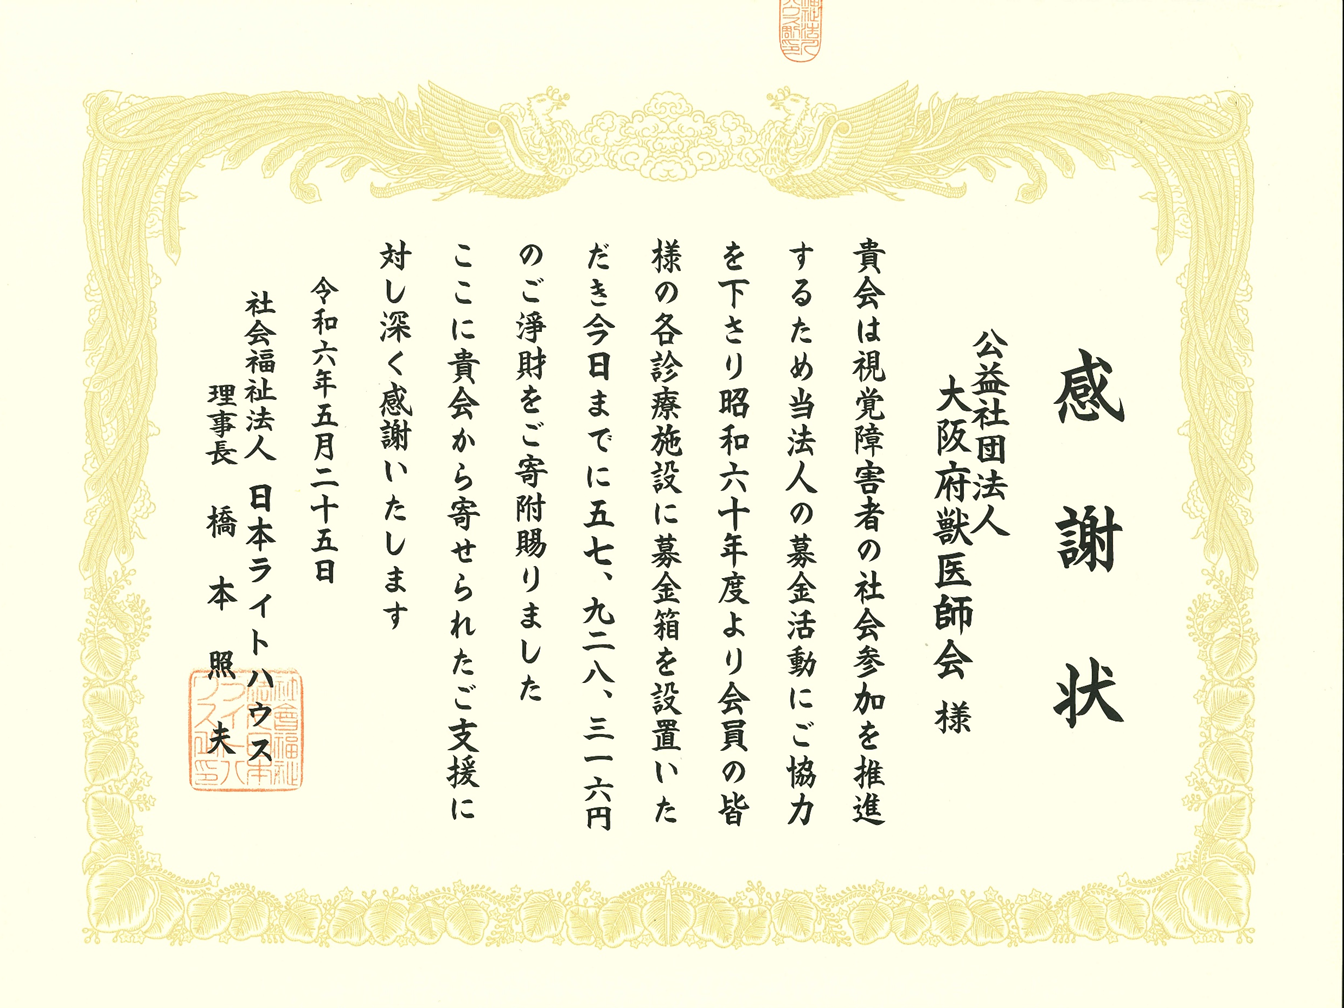 感謝状
公益社団法人
大阪府獣医師会 様
貴会は視覚障害者の社会参加を推進
するため当法人の募金活動にご協力
を下さり昭和六十年度より会員の皆
様の各診療施設に募金箱を設置いた
だき今日までに五七、九二八、三一六円
のご淨財をご寄附賜りました
ここに貴会から寄せられたご支援に
対し深く感謝いたします
令和六年五月二十五日
社会福祉法人 日本ライトハウス
理事長 橋本照夫